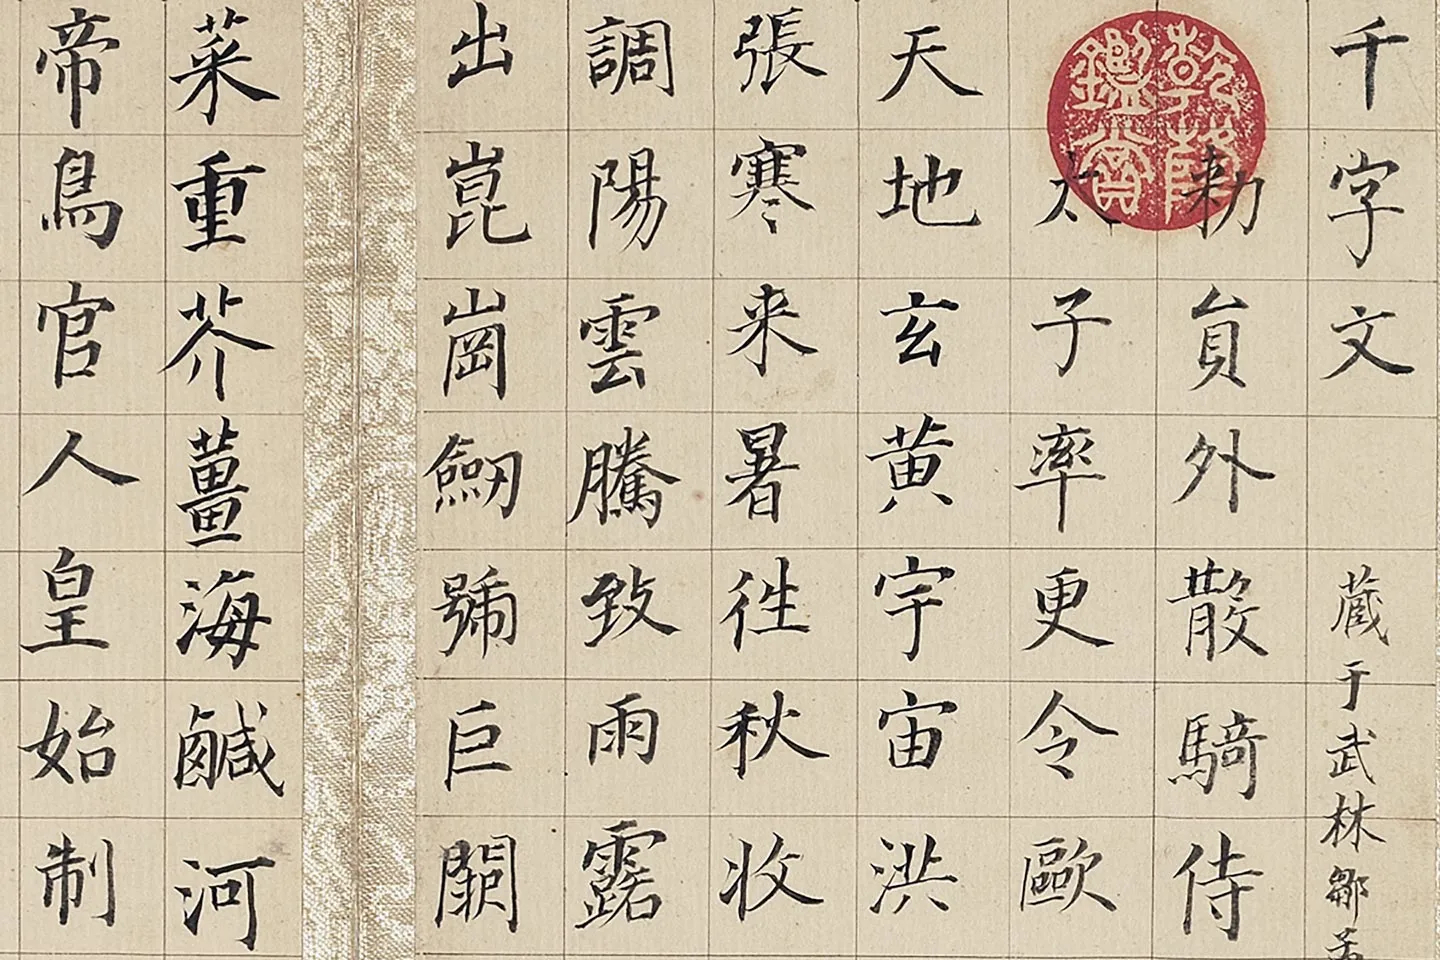 千字文
蔵于武林鄒
乾隆鑑賞
勅貟外散騎侍
太子率更令歐
天地玄黄宇宙洪
張寒来暑徃秋收
調陽雲騰致雨露
出崑崗劒號巨闕
菜重芥薑海鹹河
帝鳥官人皇始制